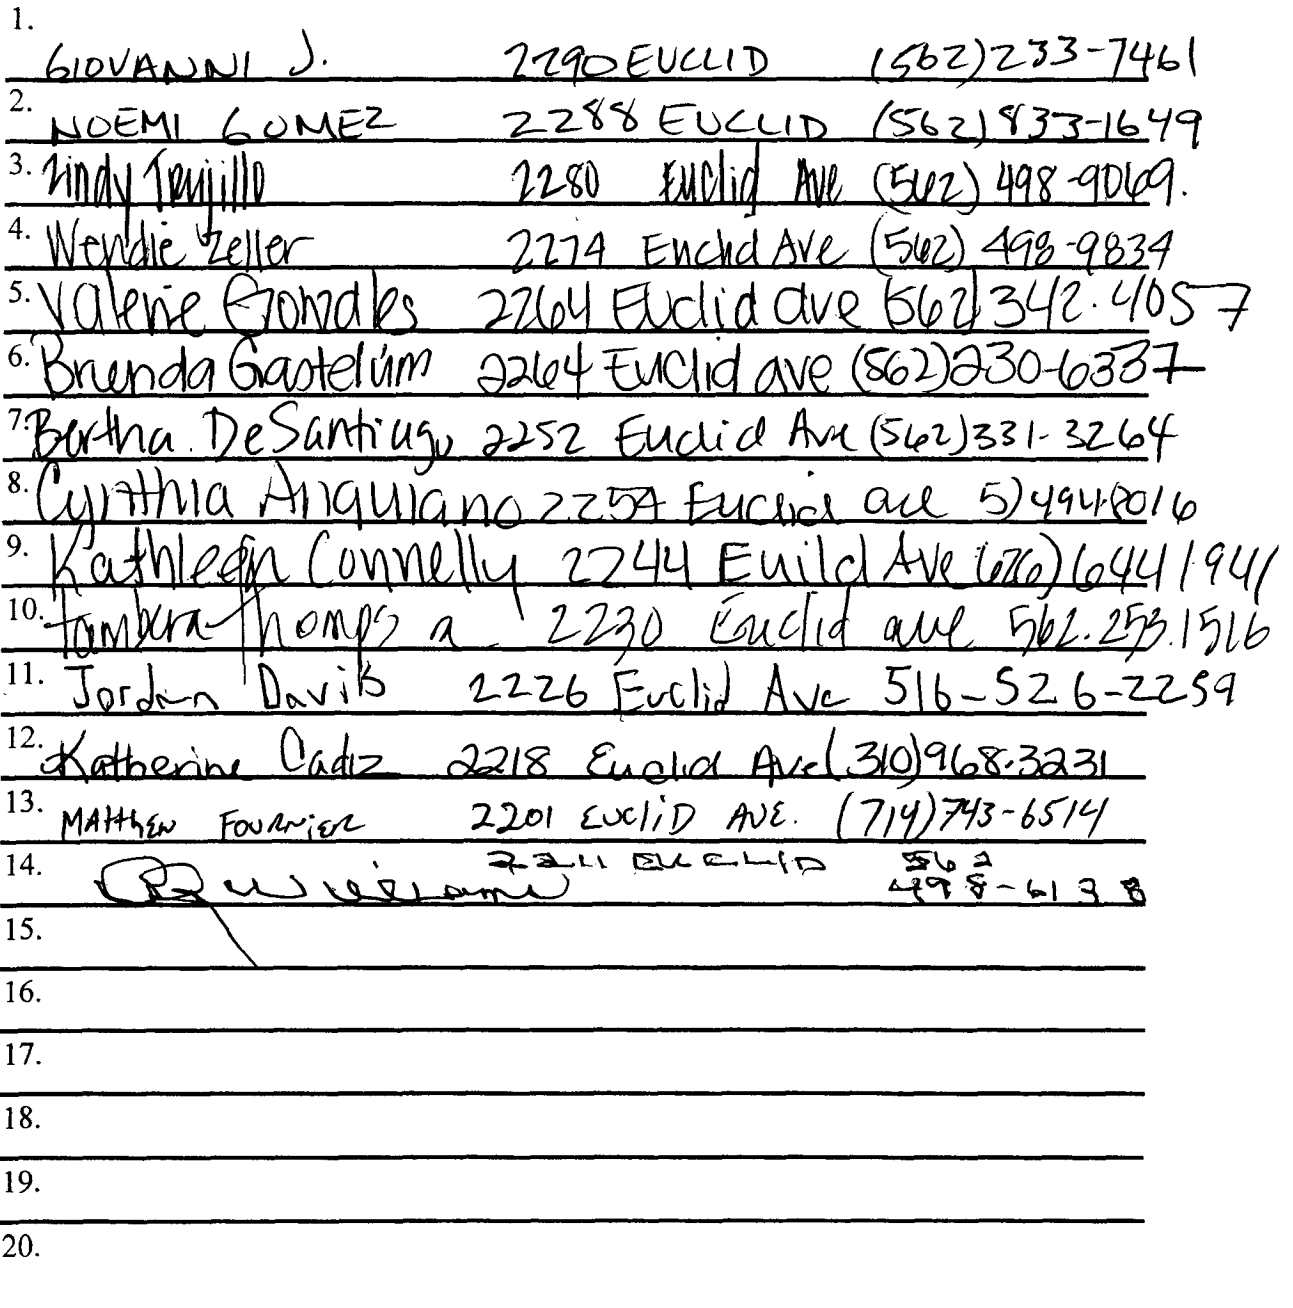 1. GIOVANNI J. 2290 EUCLID (562)233-7461
2. NOEMI GOMEZ 2288 EUCLID (562)833-1649
3. Zindy Trujillo 2280 Euclid Ave (562) 498-9069.
4. Wendie Zeller 2274 Euclid Ave (562) 498-9834
5. Valerie Gonzales 2264 Euclid ave (562) 342.4057
6. Brenda Gastelúm 2264 Euclid ave (562)230-6337
7. Bertha DeSantiago 2252 Euclid Ave (562)331-3264
8. Cynthia Anguiano 2254 Euclid ave 5)494-8016
9. Kathleen Connelly 2244 Euild Ave (626) 644 1941
10. Tambra Thomps 2230 Euclid ave 562.253.1516
11. Jordan Davis 2226 Euclid Ave 516-526-2259
12. Katherine Cadiz 2218 Euclid Ave (310)968.3231
13. MATTHEW FOURNIER 2201 EUCLID AVE. (714)743-6514
14. Williams 2211 EUCLID 562
498-6138
15.
16.
17.
18.
19.
20.